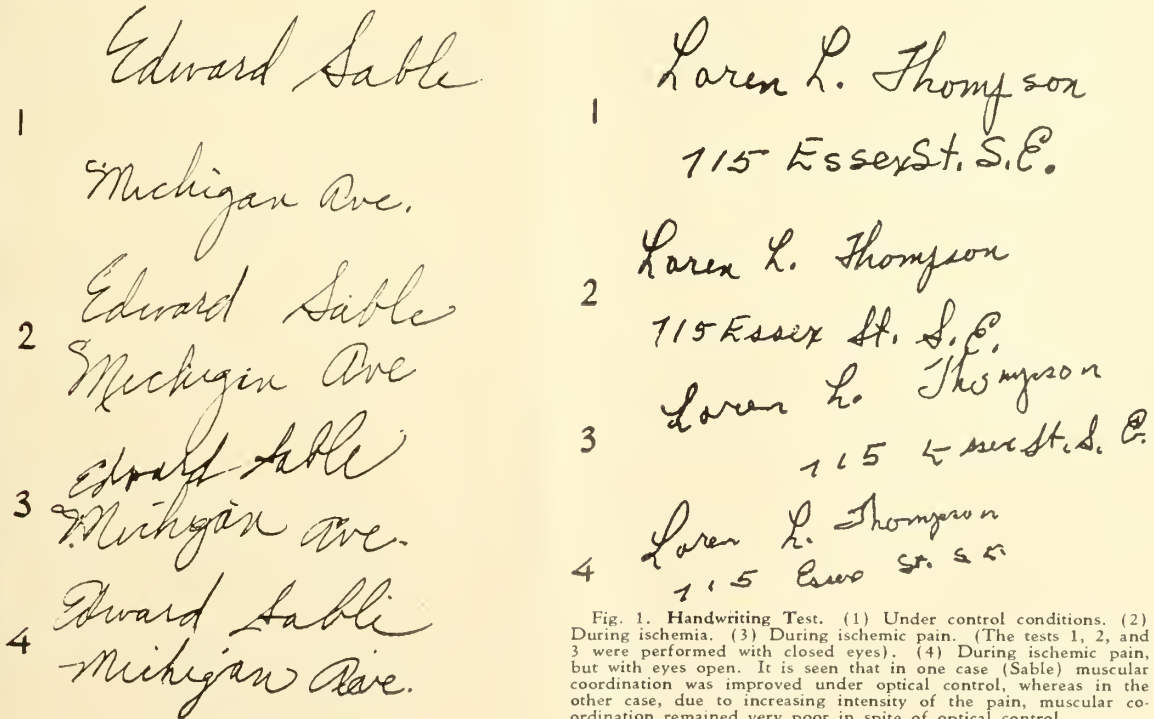 Edward Sable
1
Michigan Ave.
Edward Sable
2
Michigan Ave
Edward Sable
3
Michgan Ave.
Edward Sable
4
Michigan Ave.
Loren L. Thompson
1
715 Essex St. S.E.
Loren L. Thompson
2
715 Essex St. S.E.
Loren L. Thompson
3
715 Essex St. S. E.
Loren L. Thompson
4
715 Essex St. S E
Fig. 1. Handwriting Test. (1) Under control conditions. (2)
During ischemia. (3) During ischemic pain. (The tests 1, 2, and
3 were performed with closed eyes). (4) During ischemic pain,
but with eyes open. It is seen that in one case (Sable) muscular
coordination was improved under optical control, whereas in the
other case, due to increasing intensity of the pain, muscular co-
ordination remained very poor in spite of optical control